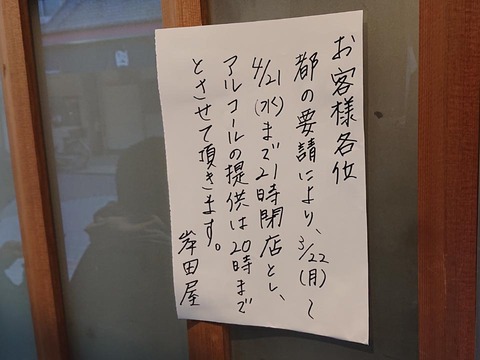 お客様各位
都の要請により、3/22(月)～
4/21(水)まで21時閉店とし、
アルコールの提供は20時まで
とさせて頂きます。
岸田屋